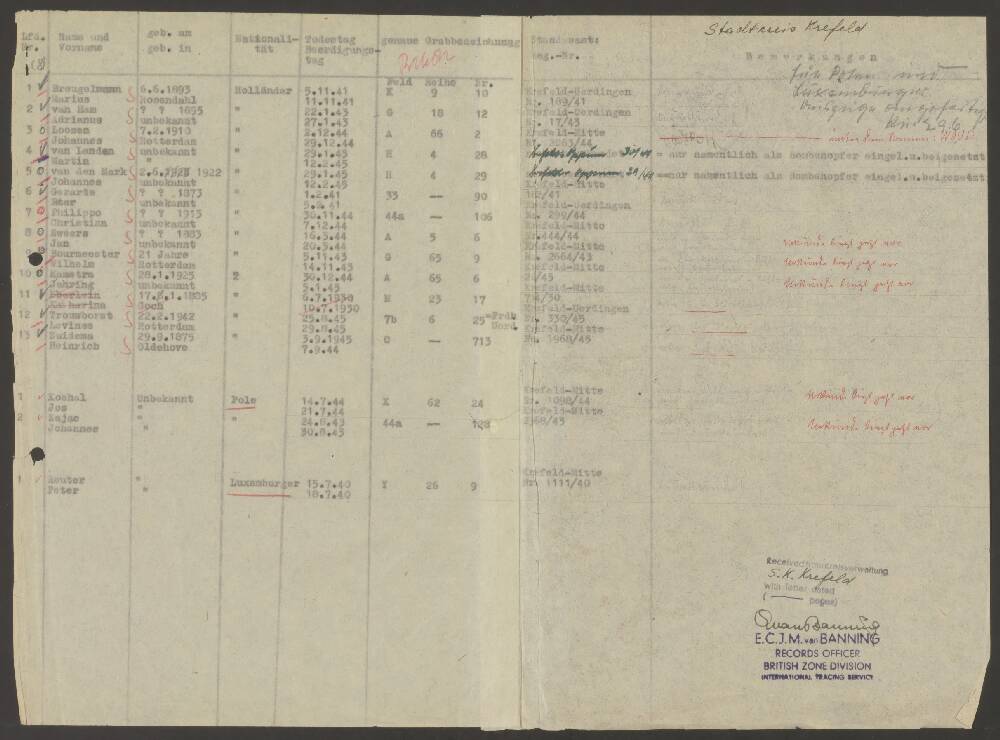 Stadtkreis Krefeld
Lfd. Nr. Name und Vorname geb. am geb. in Nationalität Todestag Beerdigungstag genaue Grabbezeichnung Standesamt: Reg.-Nr. Bemerkungen
Feld Reihe Nr.
für Polen und
Luxemburger
Auszüge angefertigt
1 Breugelmann 6.6.1893 Holländer 5.11.41 K 9 10 Krefeld-Uerdingen
Marius Rosendahl 11.11.41 Nr. 189/41
2 van Ham ? ? 1895 " 22.1.43 G 18 12 Krefeld-Uerdingen
Adrianus unbekannt 27.1.43 Nr. 17/43
3 Loosen 7.2.1910 " 2.12.44 A 66 2 Krefeld-Mitte
Johannes Rotterdam 29.12.44 Nr. 2063/44
4 van Landen unbekannt " 29.1.45 H 4 28 = nur namentlich als Bombenopfer eingel.u.beigesetzt
Martin " 12.2.45
5 van den Mark 2.6.1922 " 29.1.45 H 4 29 =nur namentlich als Bombenopfer eingel.u.beigesetzt
Johannes unbekannt 12.2.45 Krefeld-Mitte
6 Gerarts ? ? 1873 " 1.2.41 33 — 90 182/41
Peter unbekannt 5.2.41 Krefeld-Uerdingen
7 Philippo ? ? 1913 " 30.11.44 44a — 106 Nr. 299/44
Christian unbekannt 7.12.44 Krefeld-Mitte
8 Zweers ? ? 1883 " 16.3.44 A 5 6 Nr.444/44
Jan unbekannt 20.3.44 Krefeld-Mitte
Urkunde liegt jetzt vor
9 Buurmeester 21 Jahre " 5.11.43 G 65 9 Nr. 2664/43
Wilhelm Rotterdam 14.11.43 Krefeld-Mitte
Urkunde liegt jetzt vor
10 Kamstra 28.1.1925 " 30.12.44 A 65 6 26/45
Jehring unbekannt 5.1.45 Krefeld-Mitte
Urkunde liegt jetzt vor
11 Eberlein 17.8.1.1885 " 6.7.1930 M 23 17 714/30
Katharina Goch 10.7.1930 Krefeld-Uerdingen
12 Tromborst 22.2.1942 " 25.8.45 7b 6 25 =Frdh. Nord. Nr. 330/45
Levines Rotterdam 29.8.45 Krefeld-Mitte
13 Zuidema 29.8.1875 " 3.9.1945 O — 713 Nr. 1968/45
Heinrich Oldehove 7.9.44
1 Kochal Unbekannt Pole 14.7.44 X 62 24 Krefeld-Mitte
Jos " 21.7.44 Nr. 1098/44
Urkunde liegt jetzt vor
2 Zajac " " 24.8.43 44a — 128 Krefeld-Mitte
Johannes " 30.8.43 2368/43
Urkunde liegt jetzt vor
1 Reuter " Luxemburger 15.7.40 Y 26 9 Krefeld-Mitte
Peter " 18.7.40 Nr. 1111/40
Received from Kreisverwaltung
S.K. Krefeld
with letter dated
( — pages)
E.C.J.M. van BANNING
RECORDS OFFICER
BRITISH ZONE DIVISION
INTERNATIONAL TRACING SERVICE